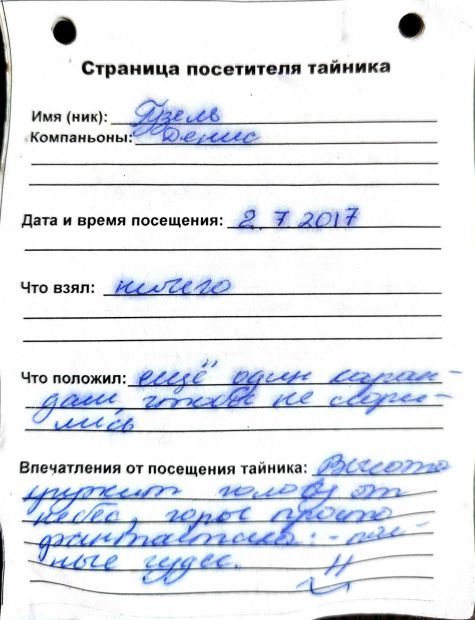 Страница посетителя тайника
Имя (ник): Гузель
Компаньоны: Денис
Дата и время посещения: 2.7.2017
Что взял: ничего
Что положил: ещё один каран-
даш чтобы не
лись
Впечатления от посещения тайника: Высота
кружит голову от
небес, горы просто
фантастика:-
ные чудес.